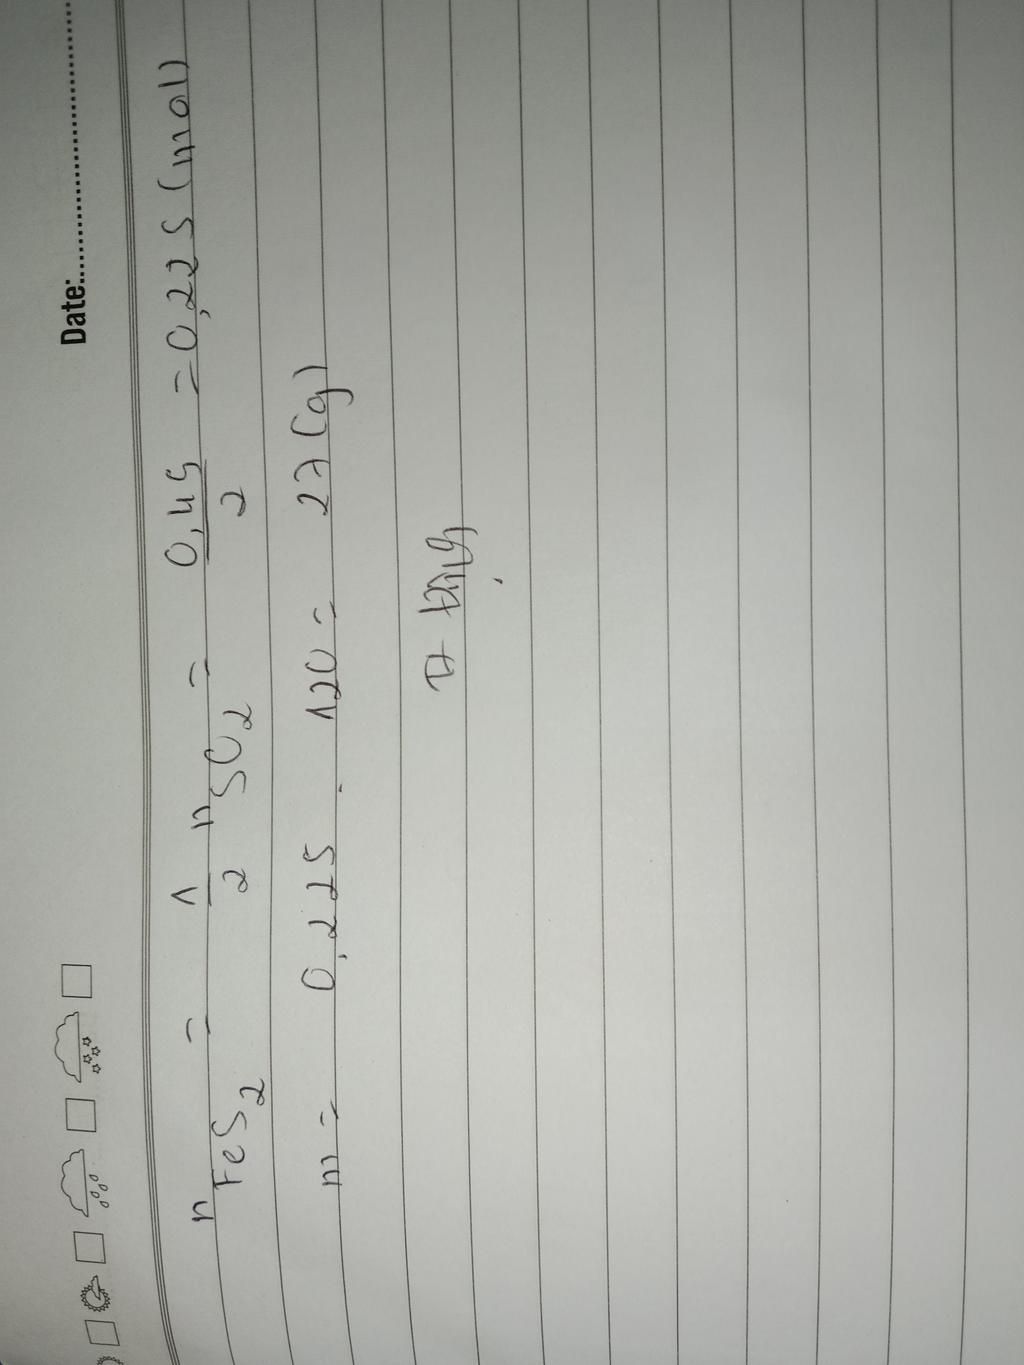 Date:
n FeS2 = 1/2 n SO2 = 0,45/2 = 0,225 (mol)
m = 0,225 . 120 = 27 (g)